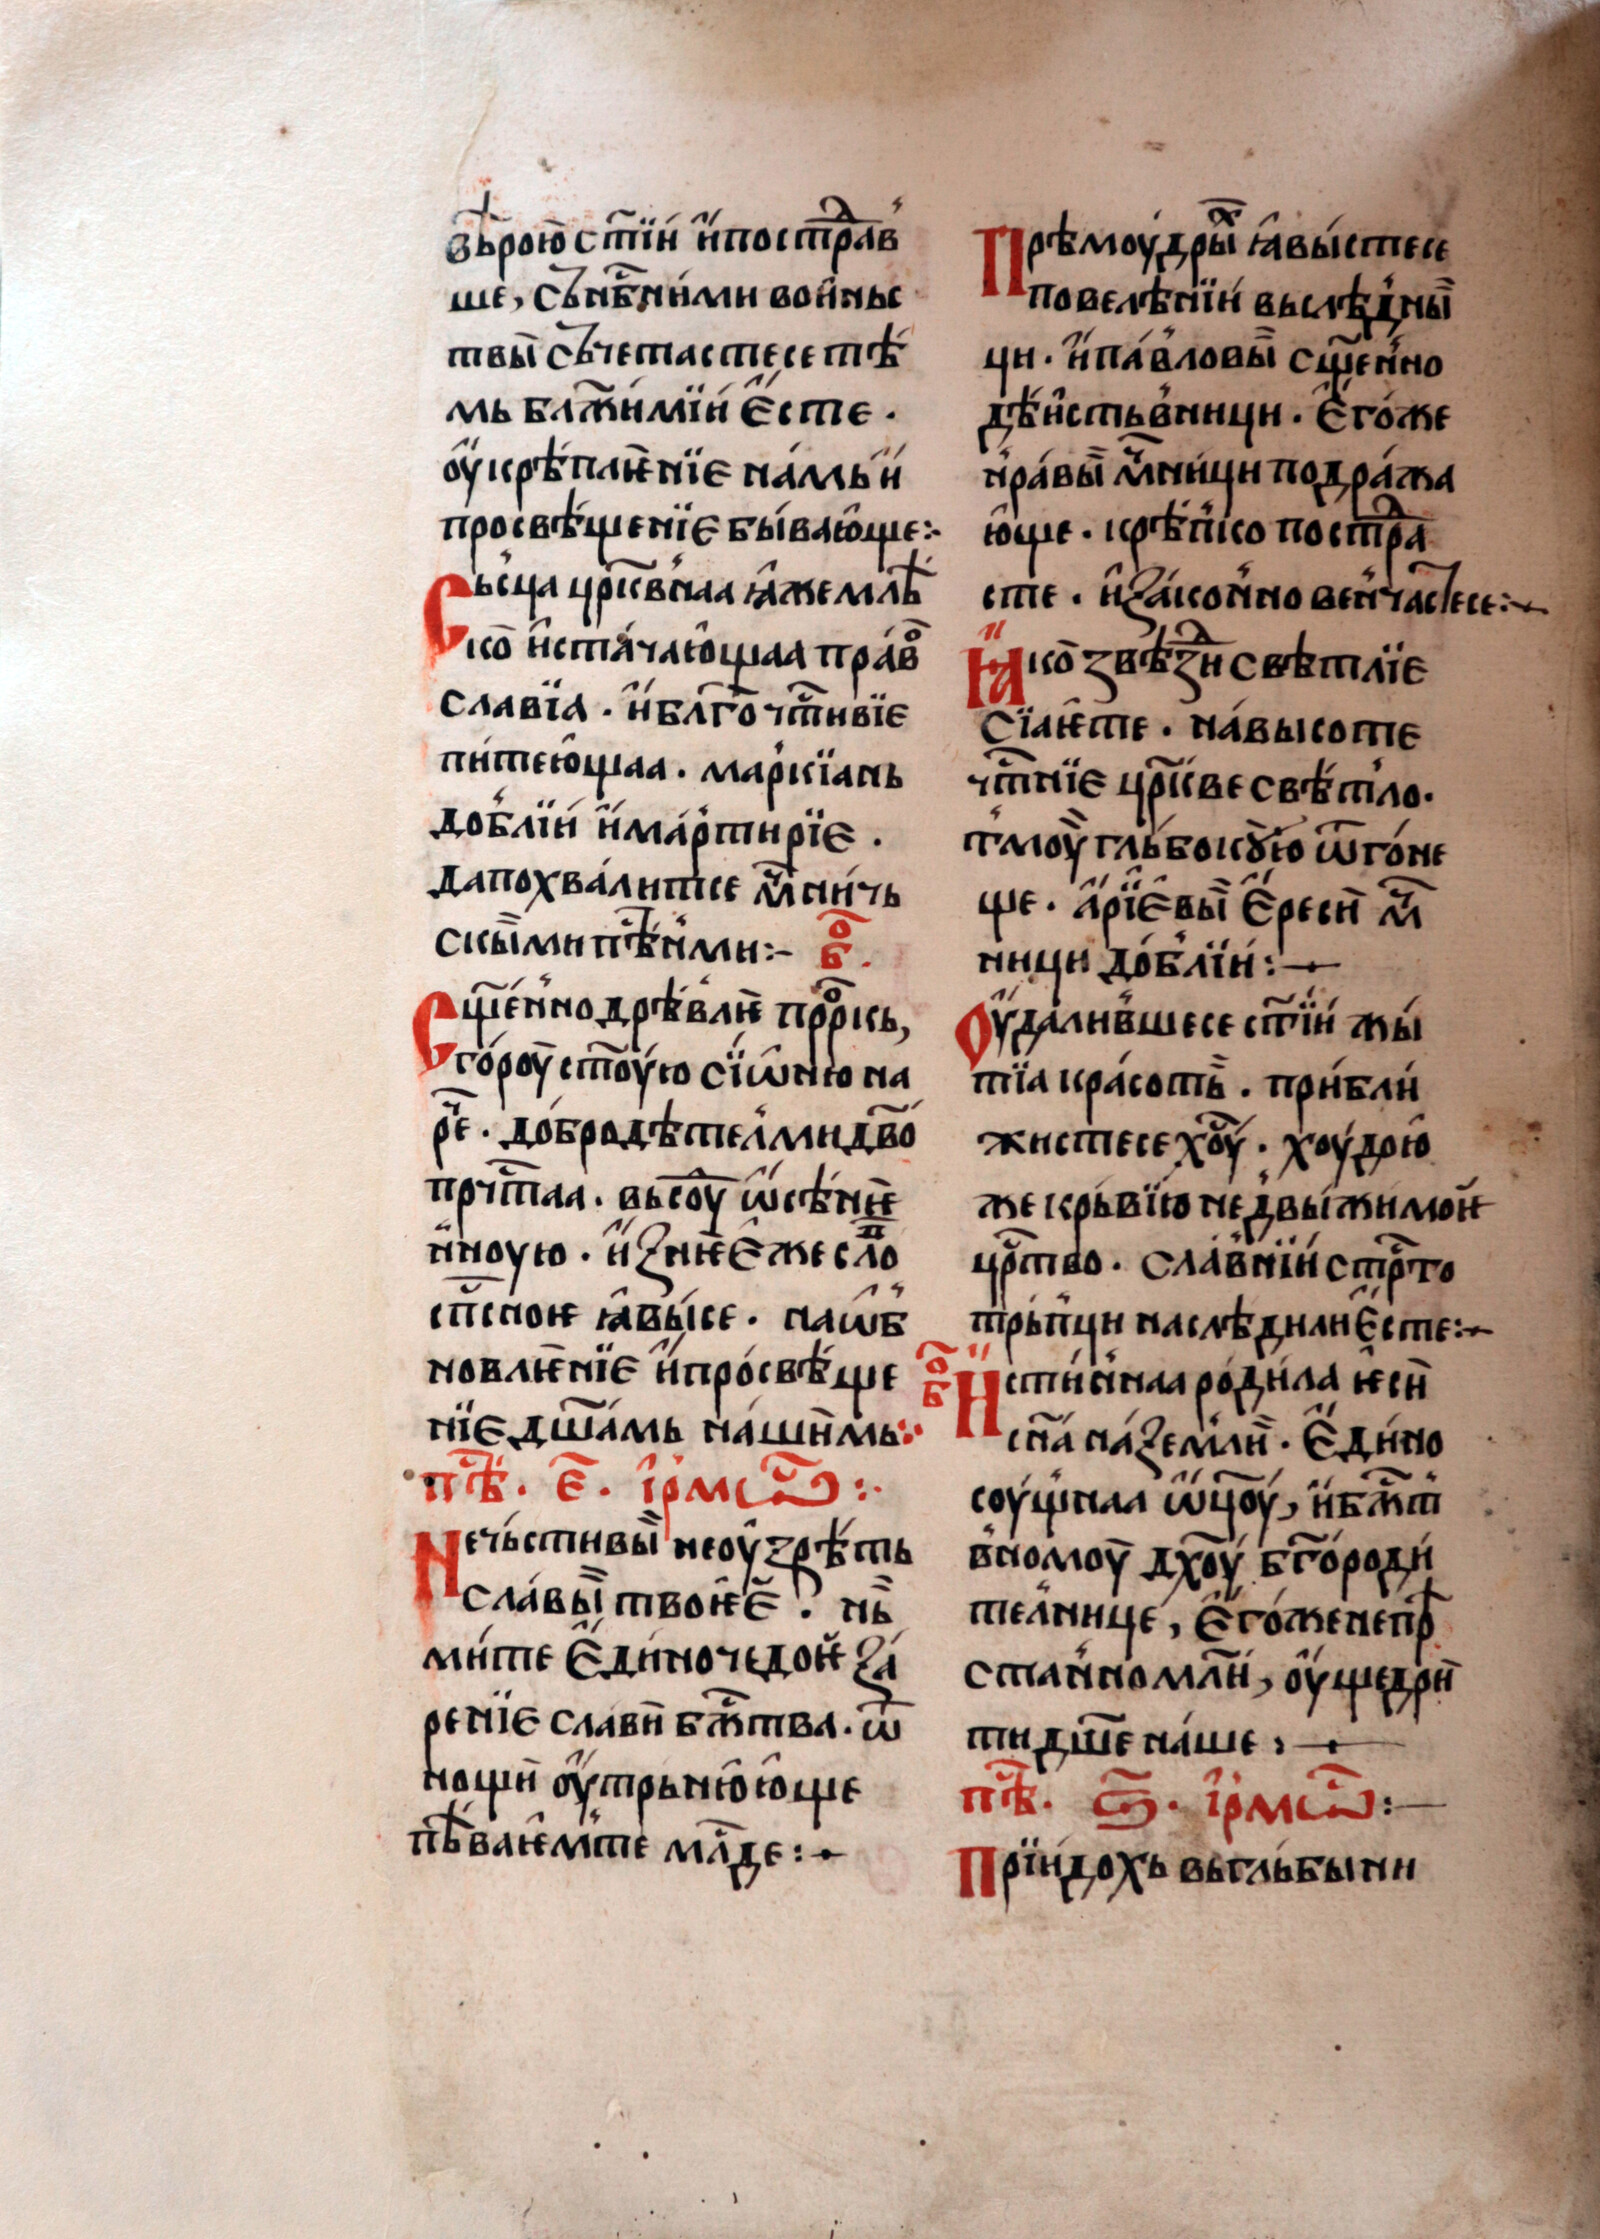 вѣрою ст҃їи и҆ постра́дав
ше, съ нб҃ными воиньс
твы съчетастесе тѣ
мь бл҃жимїи є҆сте ·
оу҆крѣплѥнїе намь и҆
просвѣщенїе бывающе:-
Сьсца цр҃квнаа ꙗ҆же млѣ
ко и҆стачающаа право
славїа · и҆ бл҃гочт҃ивїе
питеющаа · маркїань
доблїи и҆ мартирїе ·
да похвалитсе мч҃ничь
скыми пѣ́сн҃ми:- бо҃ .
Сщ҃енно дрѣвлѥ прр҃окь,
гороу ст҃оую сїѡ҆ню на
реч҃ · добродѣтелми дв҃о
прчт҃аа · высоу ѡ҆сѣнѥ
нноую · и҆ з нѥ є҆же сло
сп҃сноѥ ꙗ҆высе · на ѡ҆б
новлѥнїе и҆ просвѣще
нїе дш҃амь нашимь:·
пѣс҃ · є҃ · і҆рмѡс҃ :·
Нечьстивы не оу҆зрѣть
славы твоѥе҆ х҃е · нь
ми те є҆диночедоѥ за
ренїе слави бж҃тва · ѡ҆т
нощи оу҆трьнююще
пѣваѥмь те чл҃колюбче:-
Прѣмоудры х҃ ꙗ҆выстесе
повелѣнїи вьслѣдны
ци · и҆ павловы сщ҃енно
дѣистьвници · є҆гоже
нравы мч҃ници подража
ю҆ще · крѣпко постра́да
сте · и҆ законно венчастесе:-
Ꙗ҆ко звѣзди свѣтлїе
сїаѥте · на высоте
чт҃нїе цр҃кве свѣтло·
тмоу гльбокꙋю ѿгоне
ще · а҆рїє҆вы є҆реси мч҃
ници доблїи:-
Оу҆далившесе ст҃їи жы
тїа красоть · прибли
жистесе хо҃у · хоудрю
же крьвїю недвыжимоѥ
цр҃тво · славнїи стр҃то
трьпци наслѣдили є҆сте:-
бо҃ И҆стиннаа родила ѥси
сн҃а на земли · є҆дино
соущнаа ѡ҆ц҃оу, и҆ бж҃ст
вномоу дх҃оу бг҃ороди
телнице, є҆гоже непрѣ
станно мл҃и, оу҆щедри
ти дш҃е наше :-
пѣс҃ · ѕ҃ · і҆рмѡс҃ :-
Прїидохь вь гльбыни